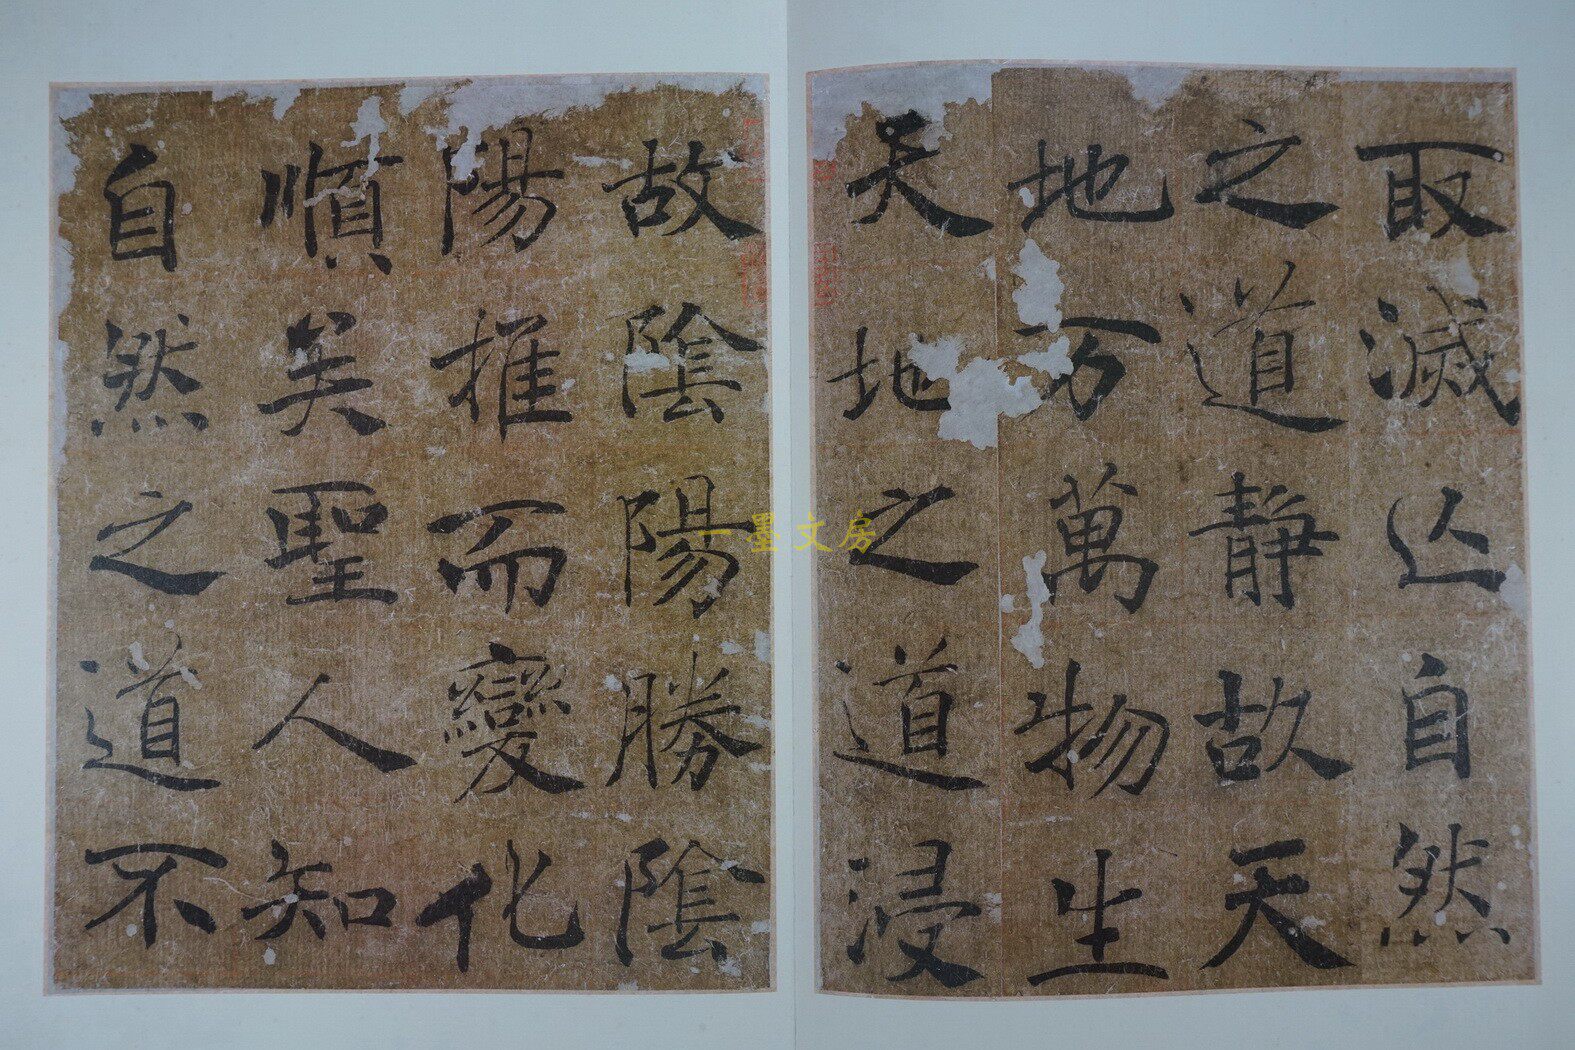 取滅亾自然
之道静故天
地万萬物生
天地之道浸
故陰陽勝陰
陽推而變化
順矣聖人知
自然之道不
一墨文房